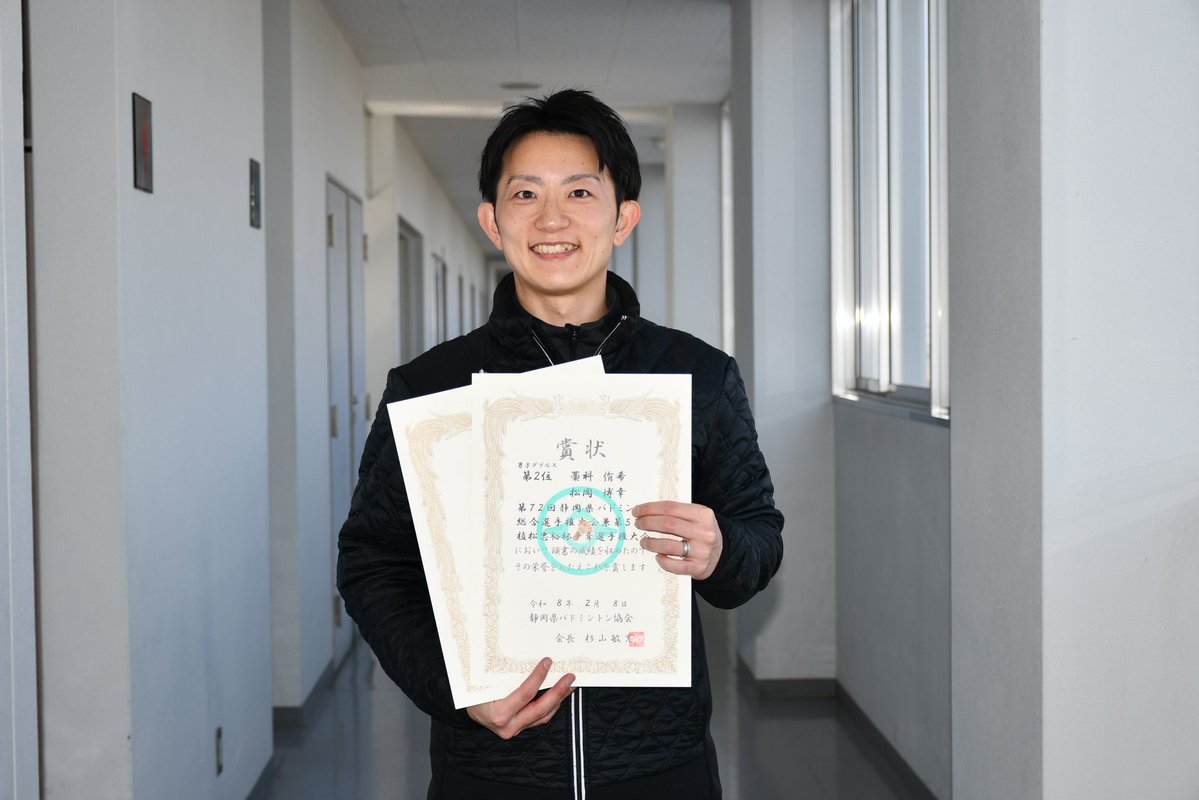 賞状
男子ダブルス
第2位 藁科 侑希
松岡 博幸
第72回静岡県バドミン
総合選手権大会兼第5
植松忠裕杯争奪選手権大会
において頭書の成績を収めたので
その栄誉をたたえこれを賞します
令和 8年 2月 8日
静岡県バドミントン協会
会長 杉山敏